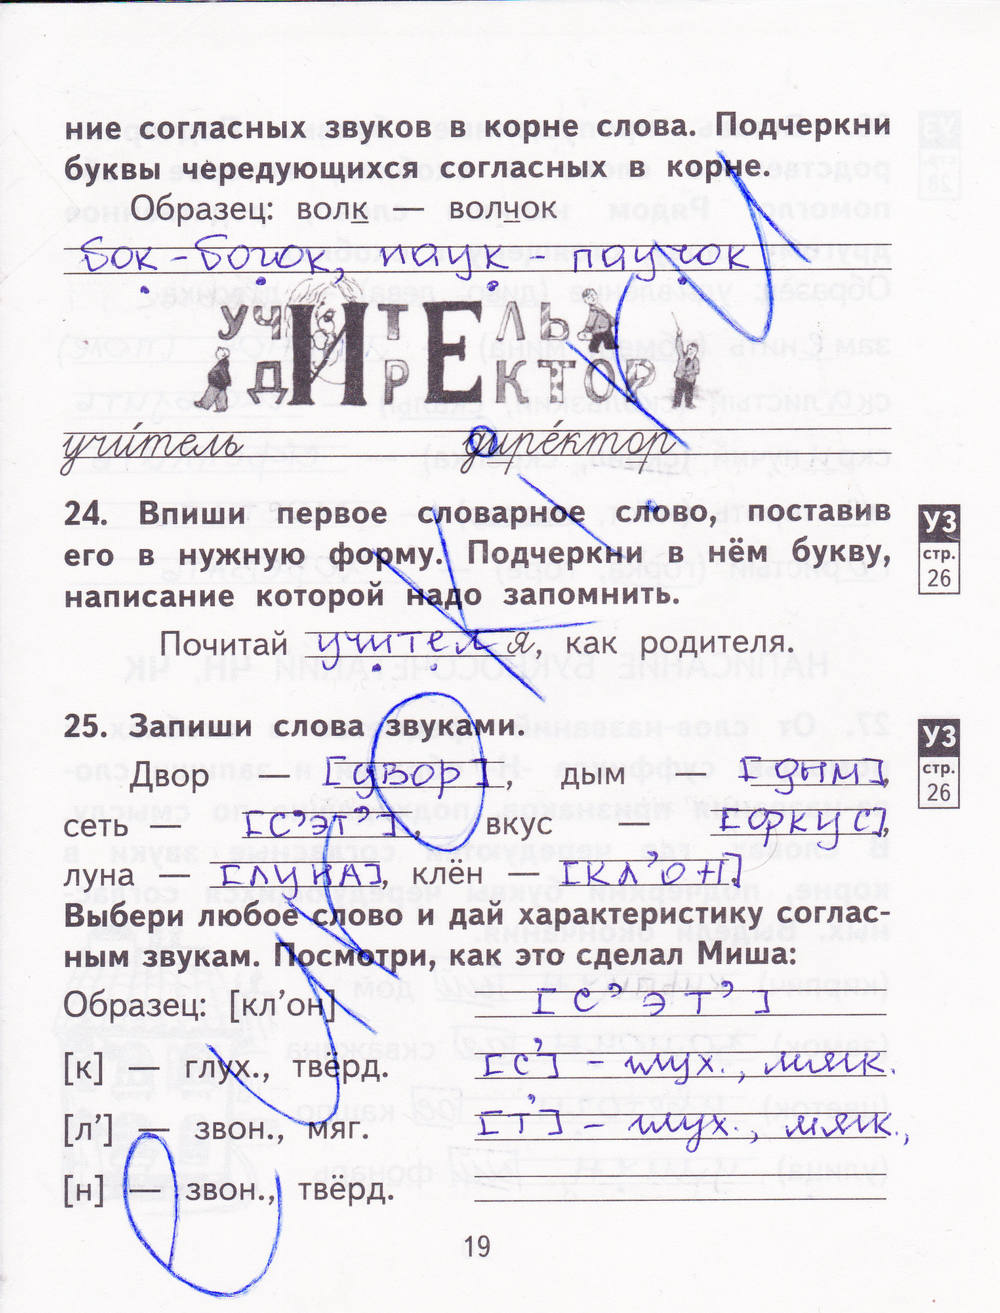 ние согласных звуков в корне слова. Подчеркни
буквы чередующихся согласных в корне.
Образец: волк — волчок
бок - бочок, паук - паучок
УЧИТЕЛЬ
ДИРЕКТОР
учи́тель дире́ктор
24. Впиши первое словарное слово, поставив
его в нужную форму. Подчеркни в нём букву,
написание которой надо запомнить.
УЗ
стр.
26
Почитай учителя, как родителя.
25. Запиши слова звуками.
УЗ
стр.
26
Двор — [двор], дым — [дым],
сеть — [с’эт’], вкус — [фкус],
луна — [луна], клён — [кл’он]
Выбери любое слово и дай характеристику соглас-
ным звукам. Посмотри, как это сделал Миша:
Образец: [кл’он] [с’эт’]
[к] — глух., твёрд. [с’] - глух., мягк.
[л’] — звон., мяг. [т’] - глух., мягк.,
[н] — звон., твёрд.
19